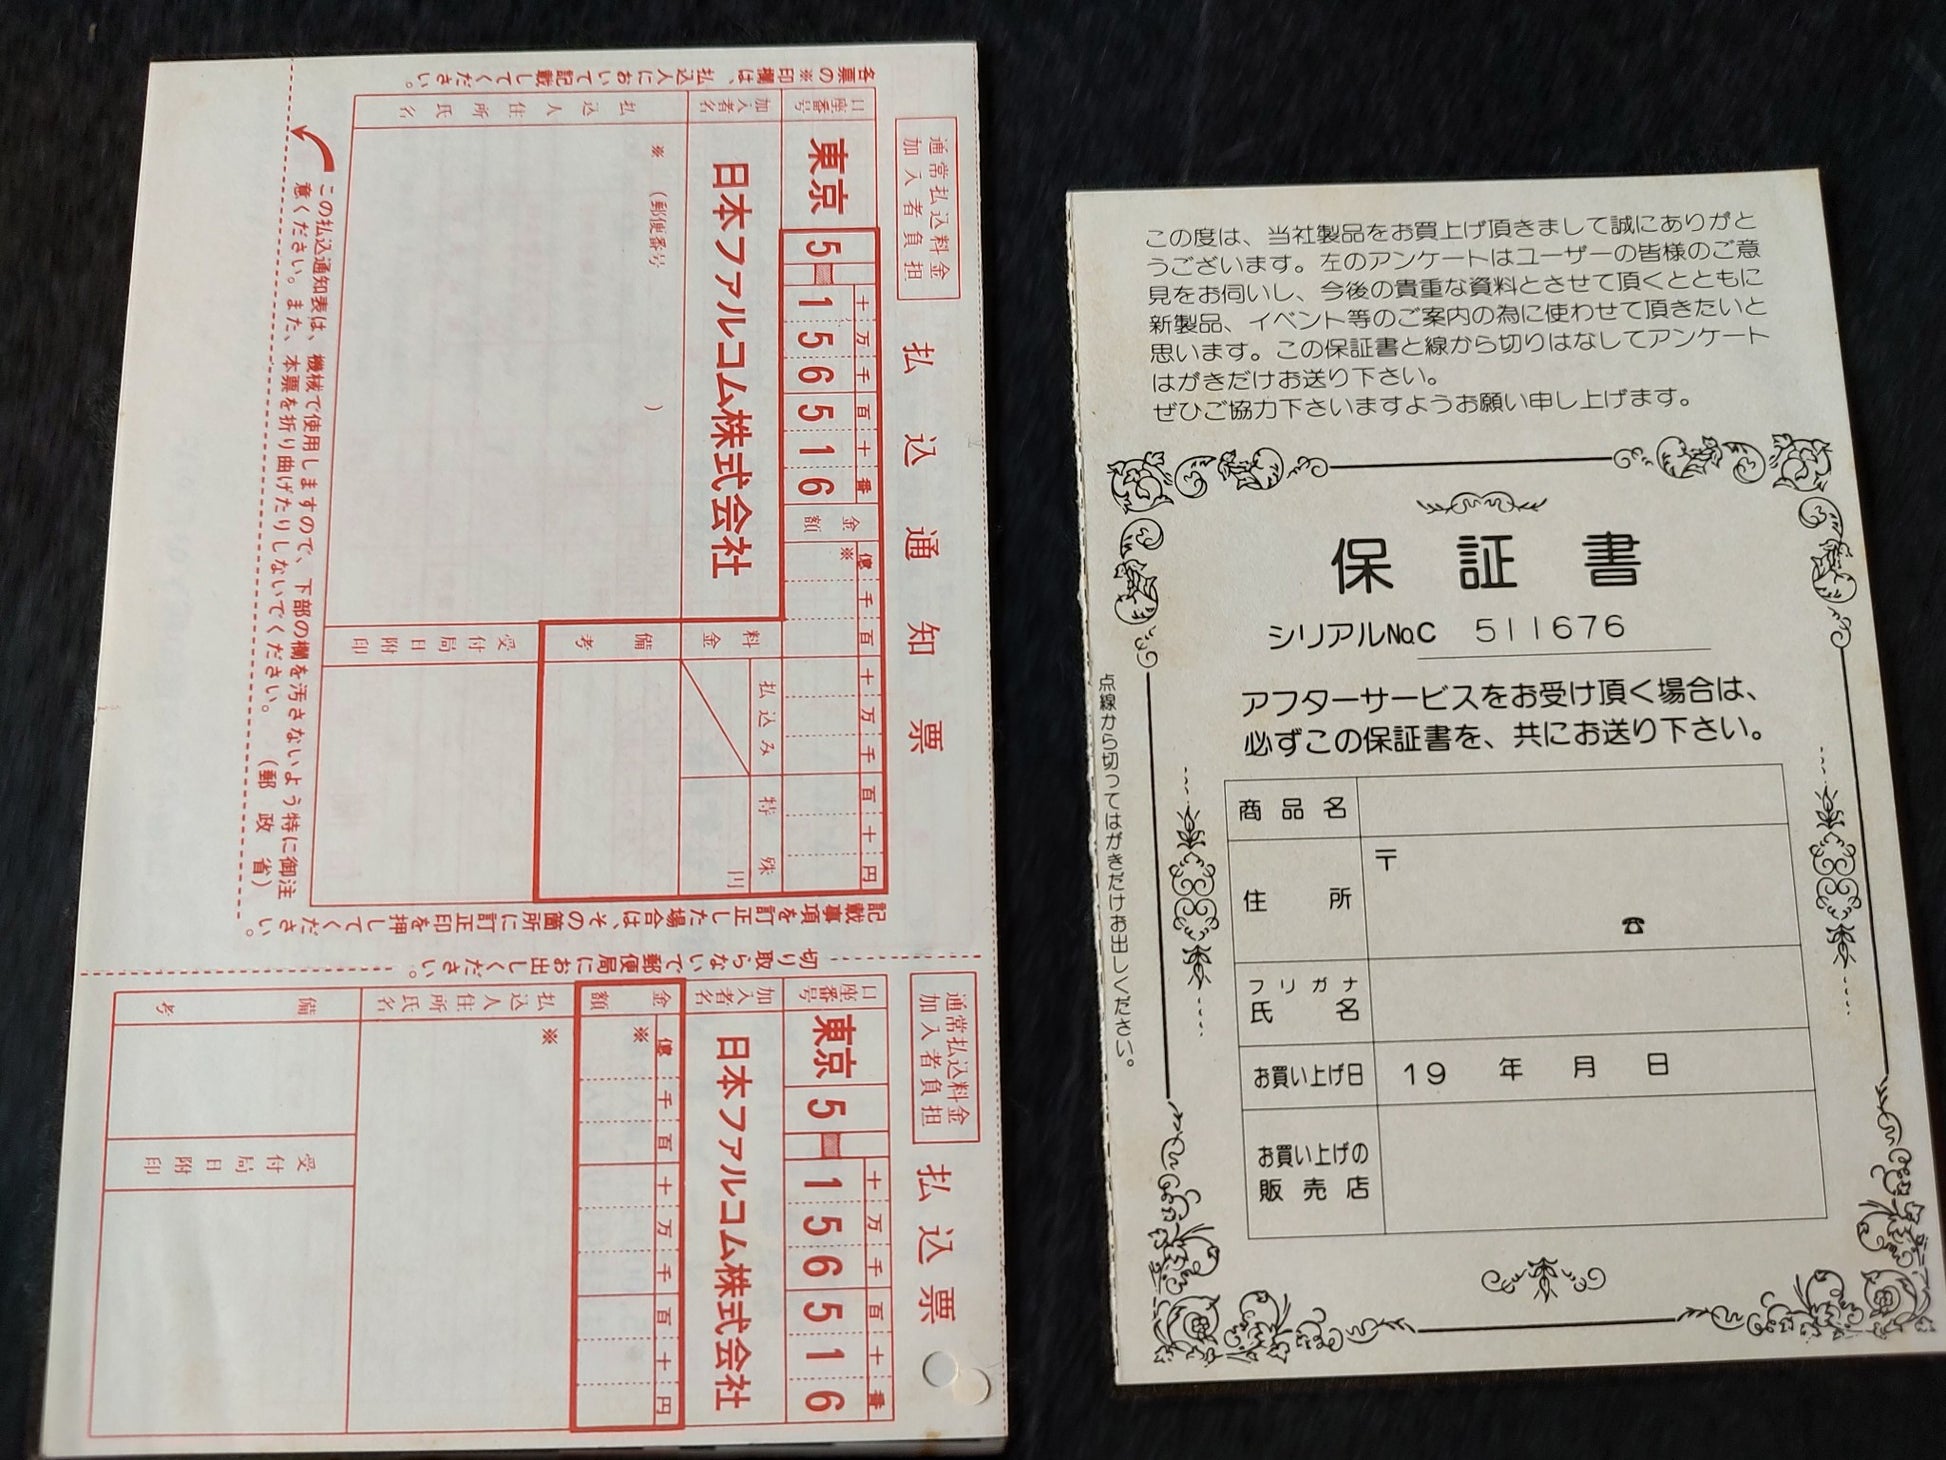 各票の※印欄は、払込人において記載してください。
通常払込料金
加入者負担
払込通知票
口座番号
東京 5 156516
十万千百十番
加入者名
日本ファルコム株式会社
金額
※
億千百十万千百十円
料金
払込み
特殊
円
備考
払込人住所氏名
※(郵便番号 )
受付局日附印
この払込通知表は、機械で使用しますので、下部の欄を汚さないよう特に御注
意ください。また、本票を折り曲げたりしないでください。(郵政省)
記載事項を訂正した場合は、その箇所に訂正印を押してください。
切り取らないで郵便局にお出しください。
通常払込料金
加入者負担
払込票
口座番号
東京 5 156516
十万千百十番
加入者名
日本ファルコム株式会社
金額
※
億千百十万千百十円
払込人住所氏名
※
備考
受付局日附印
この度は、当社製品をお買上げ頂きまして誠にありがと
うございます。左のアンケートはユーザーの皆様のご意
見をお伺いし、今後の貴重な資料とさせて頂くとともに
新製品、イベント等のご案内の為に使わせて頂きたいと
思います。この保証書と線から切りはなしてアンケート
はがきだけお送り下さい。
ぜひご協力下さいますようお願い申し上げます。
保証書
シリアルNo.C 511676
アフターサービスをお受け頂く場合は、
必ずこの保証書を、共にお送り下さい。
商品名
住所
〒
☎
フリガナ
氏名
お買い上げ日
19 年 月 日
お買い上げの
販売店
点線から切ってはがきだけお出しください。